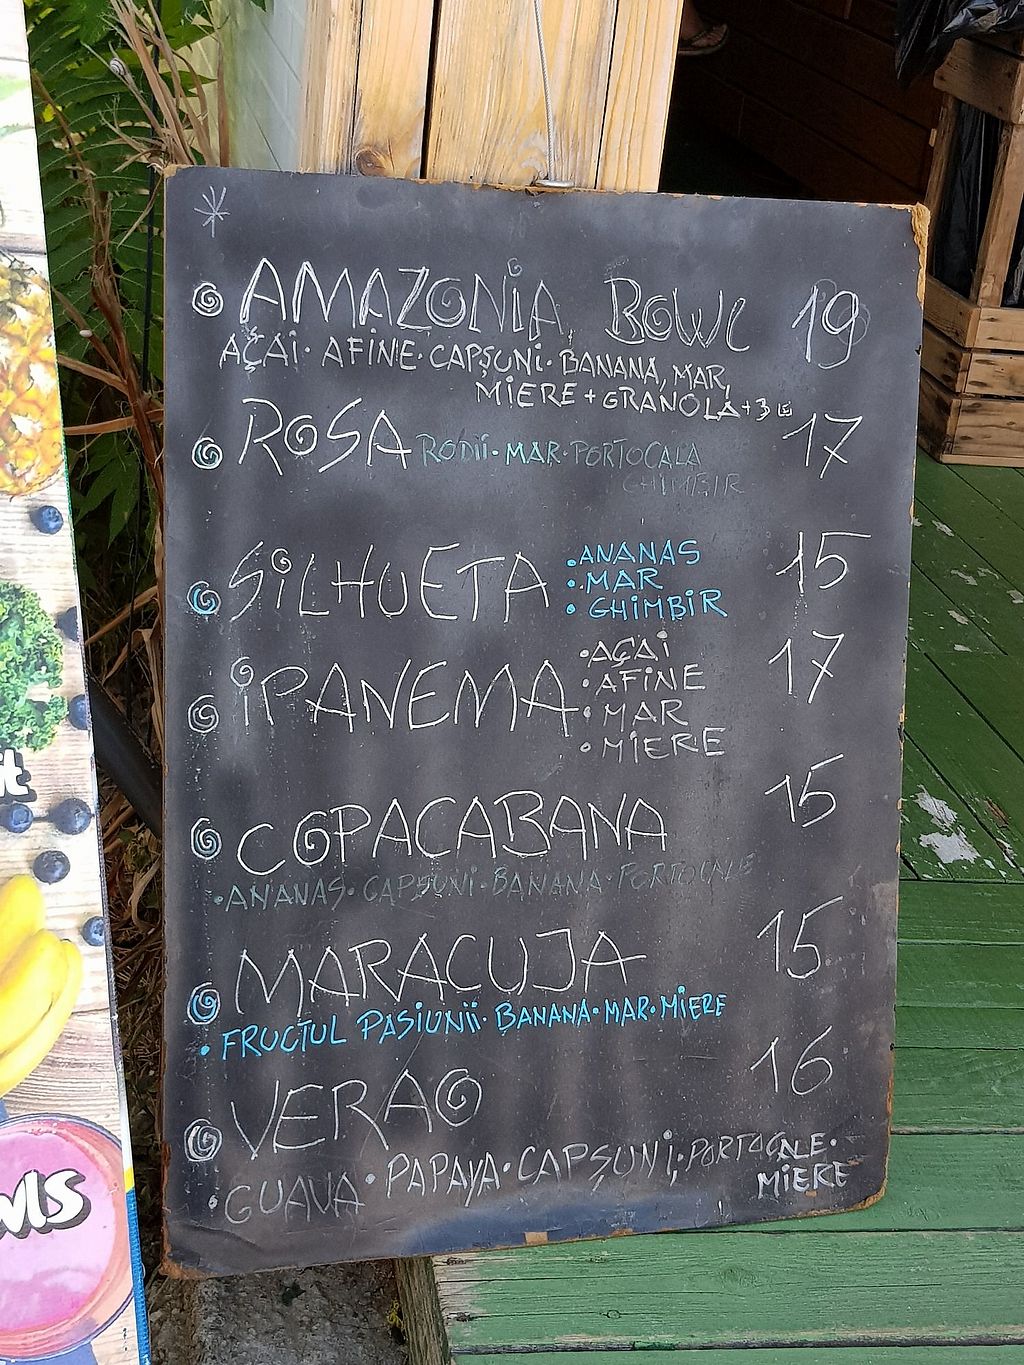 AMAZONIA BOWL 19
AÇAI · AFINE · CAPȘUNI · BANANA, MAR,
MIERE + GRANOLA +3 LE
ROSA RODII · MAR · PORTOCALA 17
GHIMBIR
SILHUETA · ANANAS 15
· MAR
· GHIMBIR
IPANEMA · AÇAI 17
· AFINE
· MAR
· MIERE
COPACABANA 15
· ANANAS · CAPȘUNI · BANANA · PORTOCALE
MARACUJA 15
· FRUCTUL PASIUNII · BANANA · MAR · MIERE
VERAO 16
· GUAVA · PAPAYA · CAPȘUNI · PORTOCALE ·
MIERE